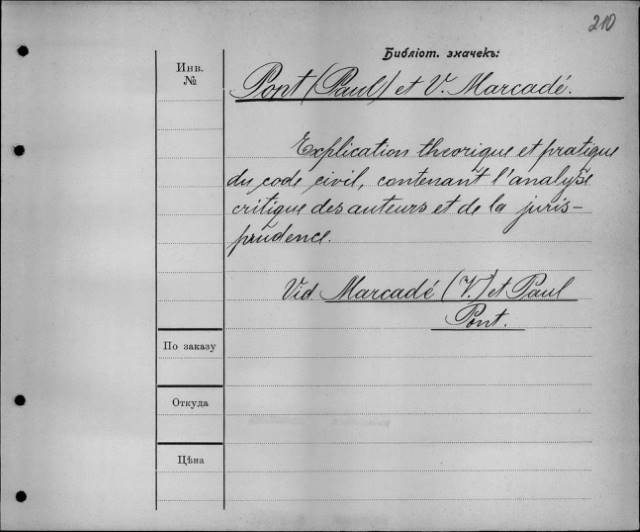 210
Библіот. значекъ:
Инв.
№
Pont (Paul) et V. Marcadé.
Explication theorique et pratique
du code civil, contenant l'analyse
critique des auteurs et de la juris-
prudence.
Vid Marcadé (V.) et Paul
Pont.
По заказу
Откуда
Цѣна